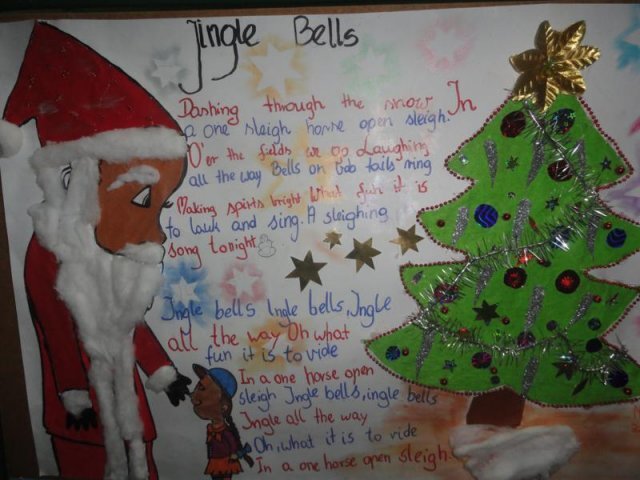 Jingle Bells
Dashing through the snow In
a one sleigh horse open sleigh.
O'er the fields we go Laughing
all the way Bells on bob tails ring
Making spirits bright What fun it is
to lauk and sing. A sleighing
song tonight
Jngle bells Ingle bells, Jngle
all the way Oh what
fun it is to vide
In a one horse open
sleigh Jngle bells, ingle bells
Jngle all the way
Oh, what it is to vide
In a one horse open sleigh.